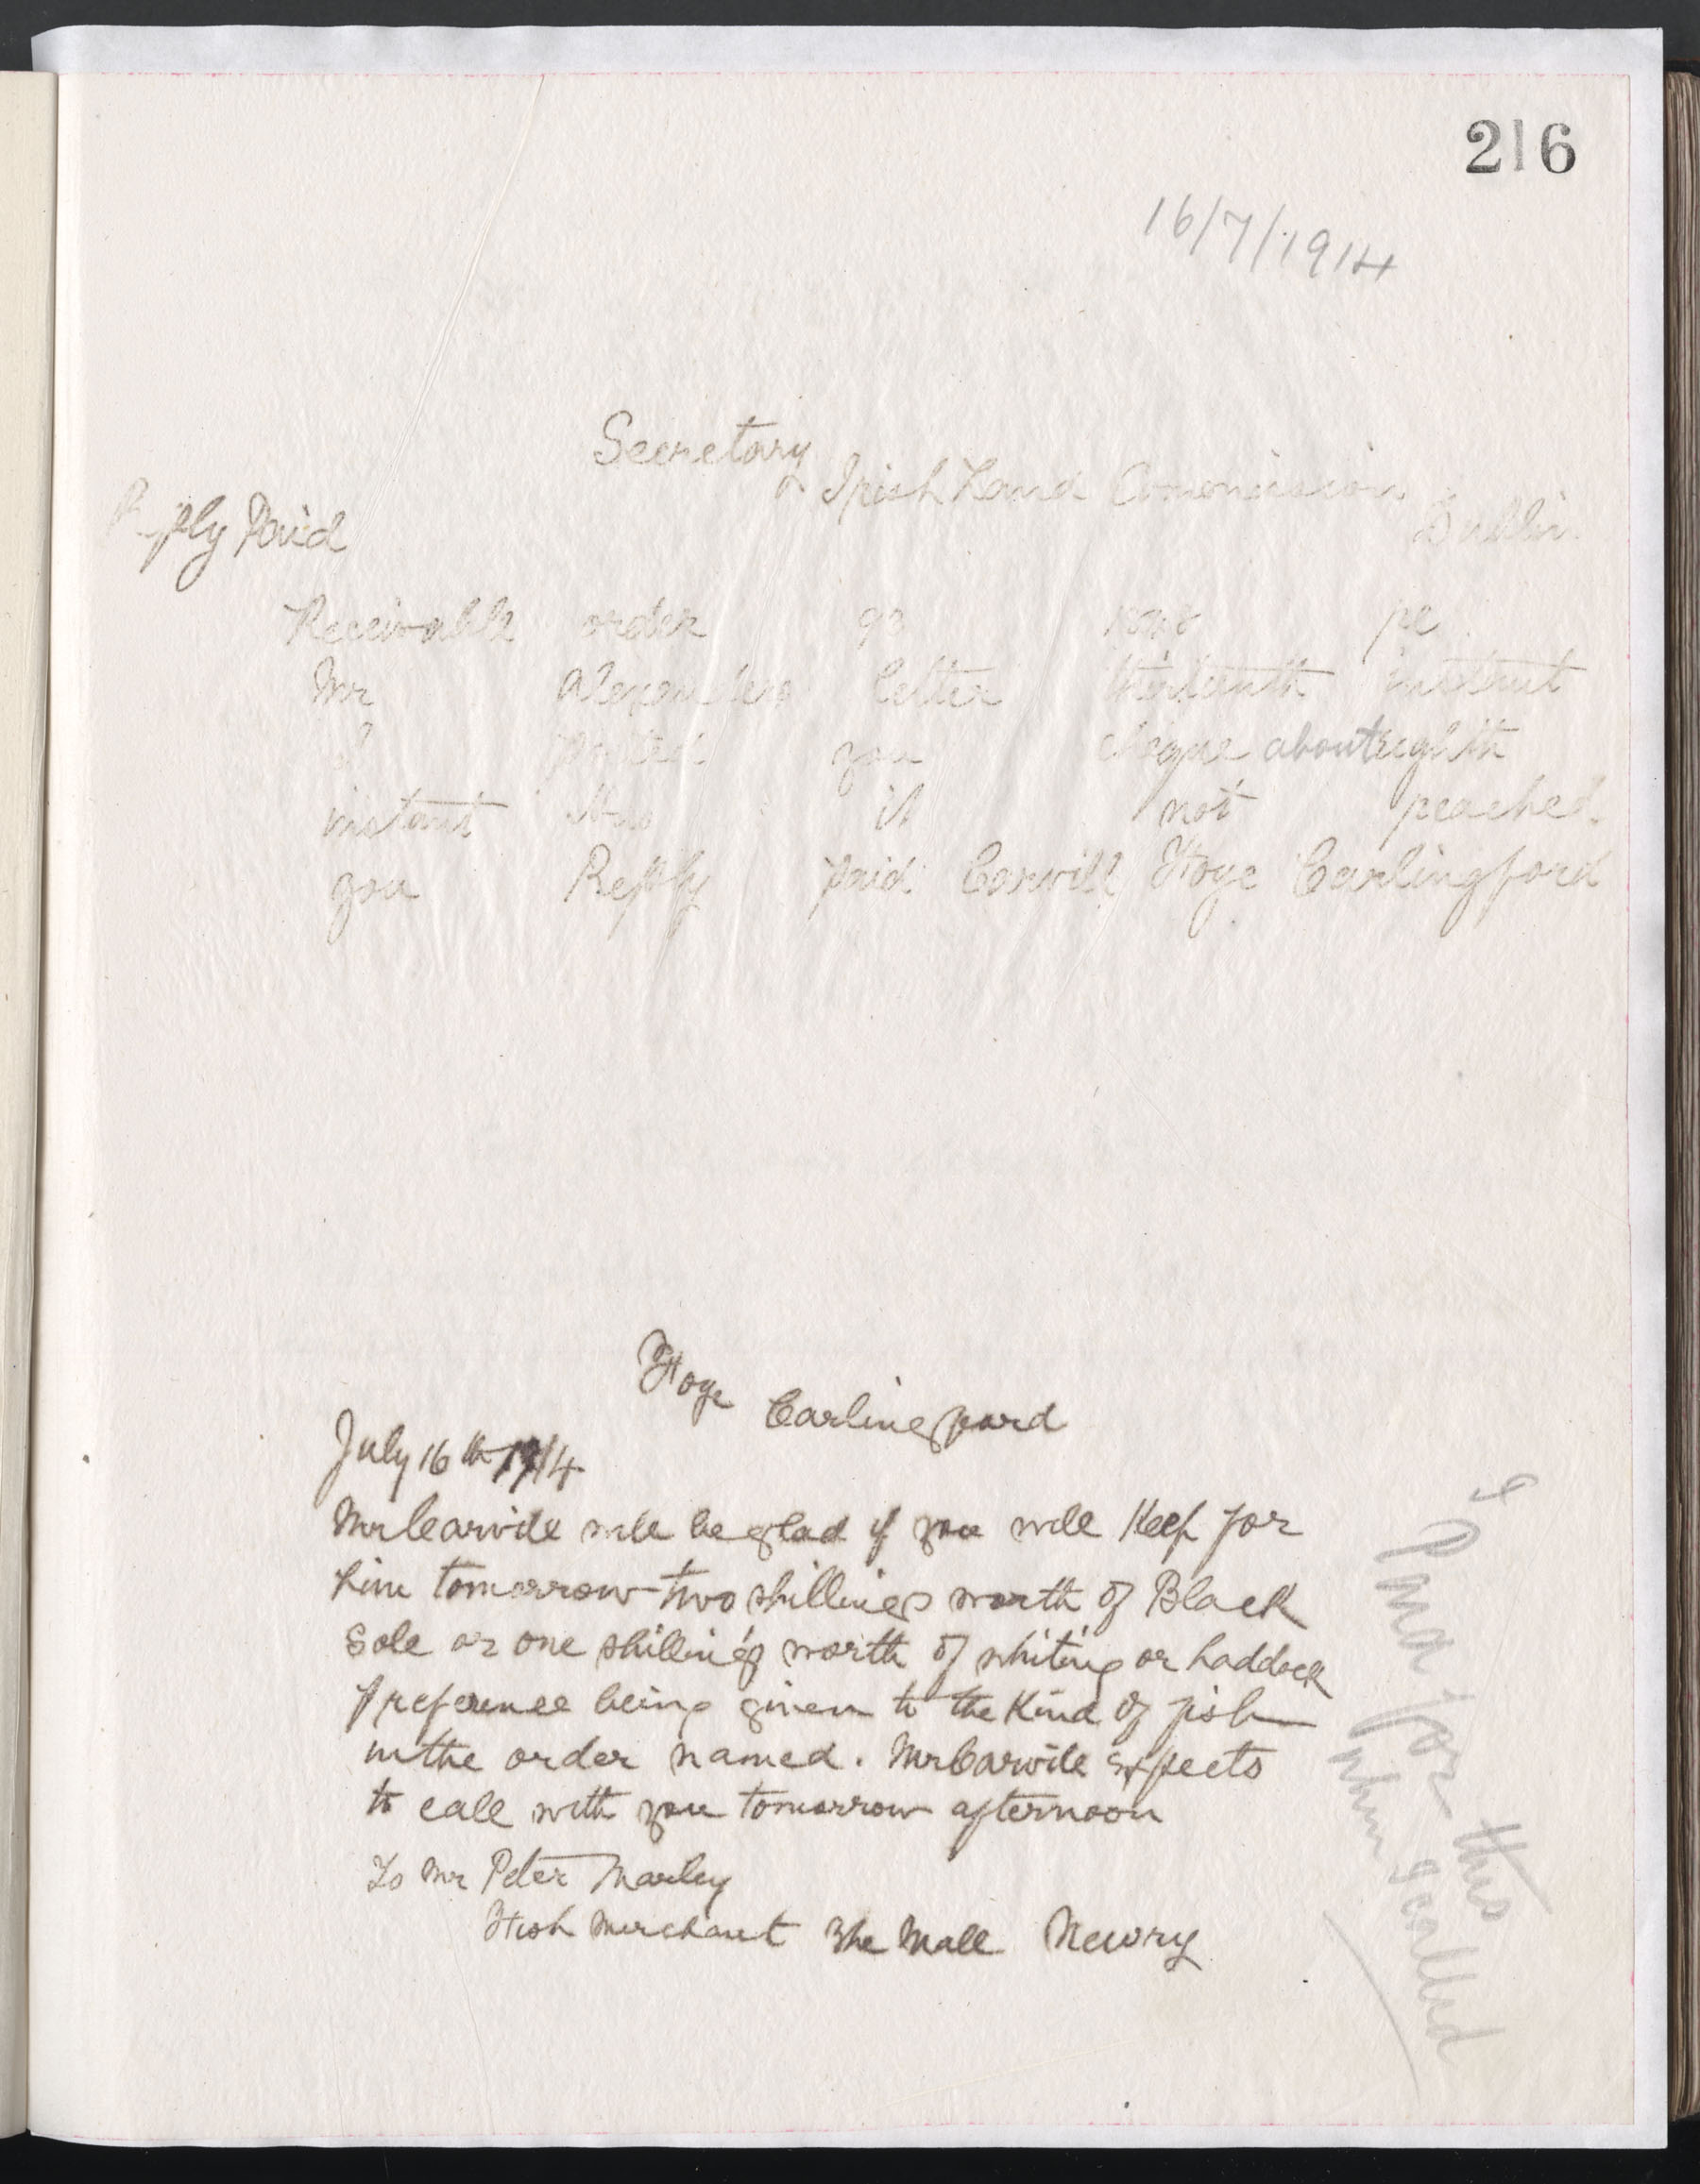 216
16/7/1914
Secretary Irish Land Commission Dublin
Reply Paid
Receivable order 93 re
Mr Alexanders letter thirteenth instant
I posted you cheque about eighth
instant Has it not reached
you Reply paid Carvill Ffoge Carlingford
Ffoge Carlingford
July 16th 1914
Mr Carvill will be glad if you will Keep for
him tomorrow two shillings worth of Black
Sole or one shilling's worth of whiting or haddock
preference being given to the Kind of fish
in the order named. Mr Carvill expects
to call with you tomorrow afternoon
To Mr Peter Marley
Fish Merchant The Mall Newry
I Paid for this
when I called